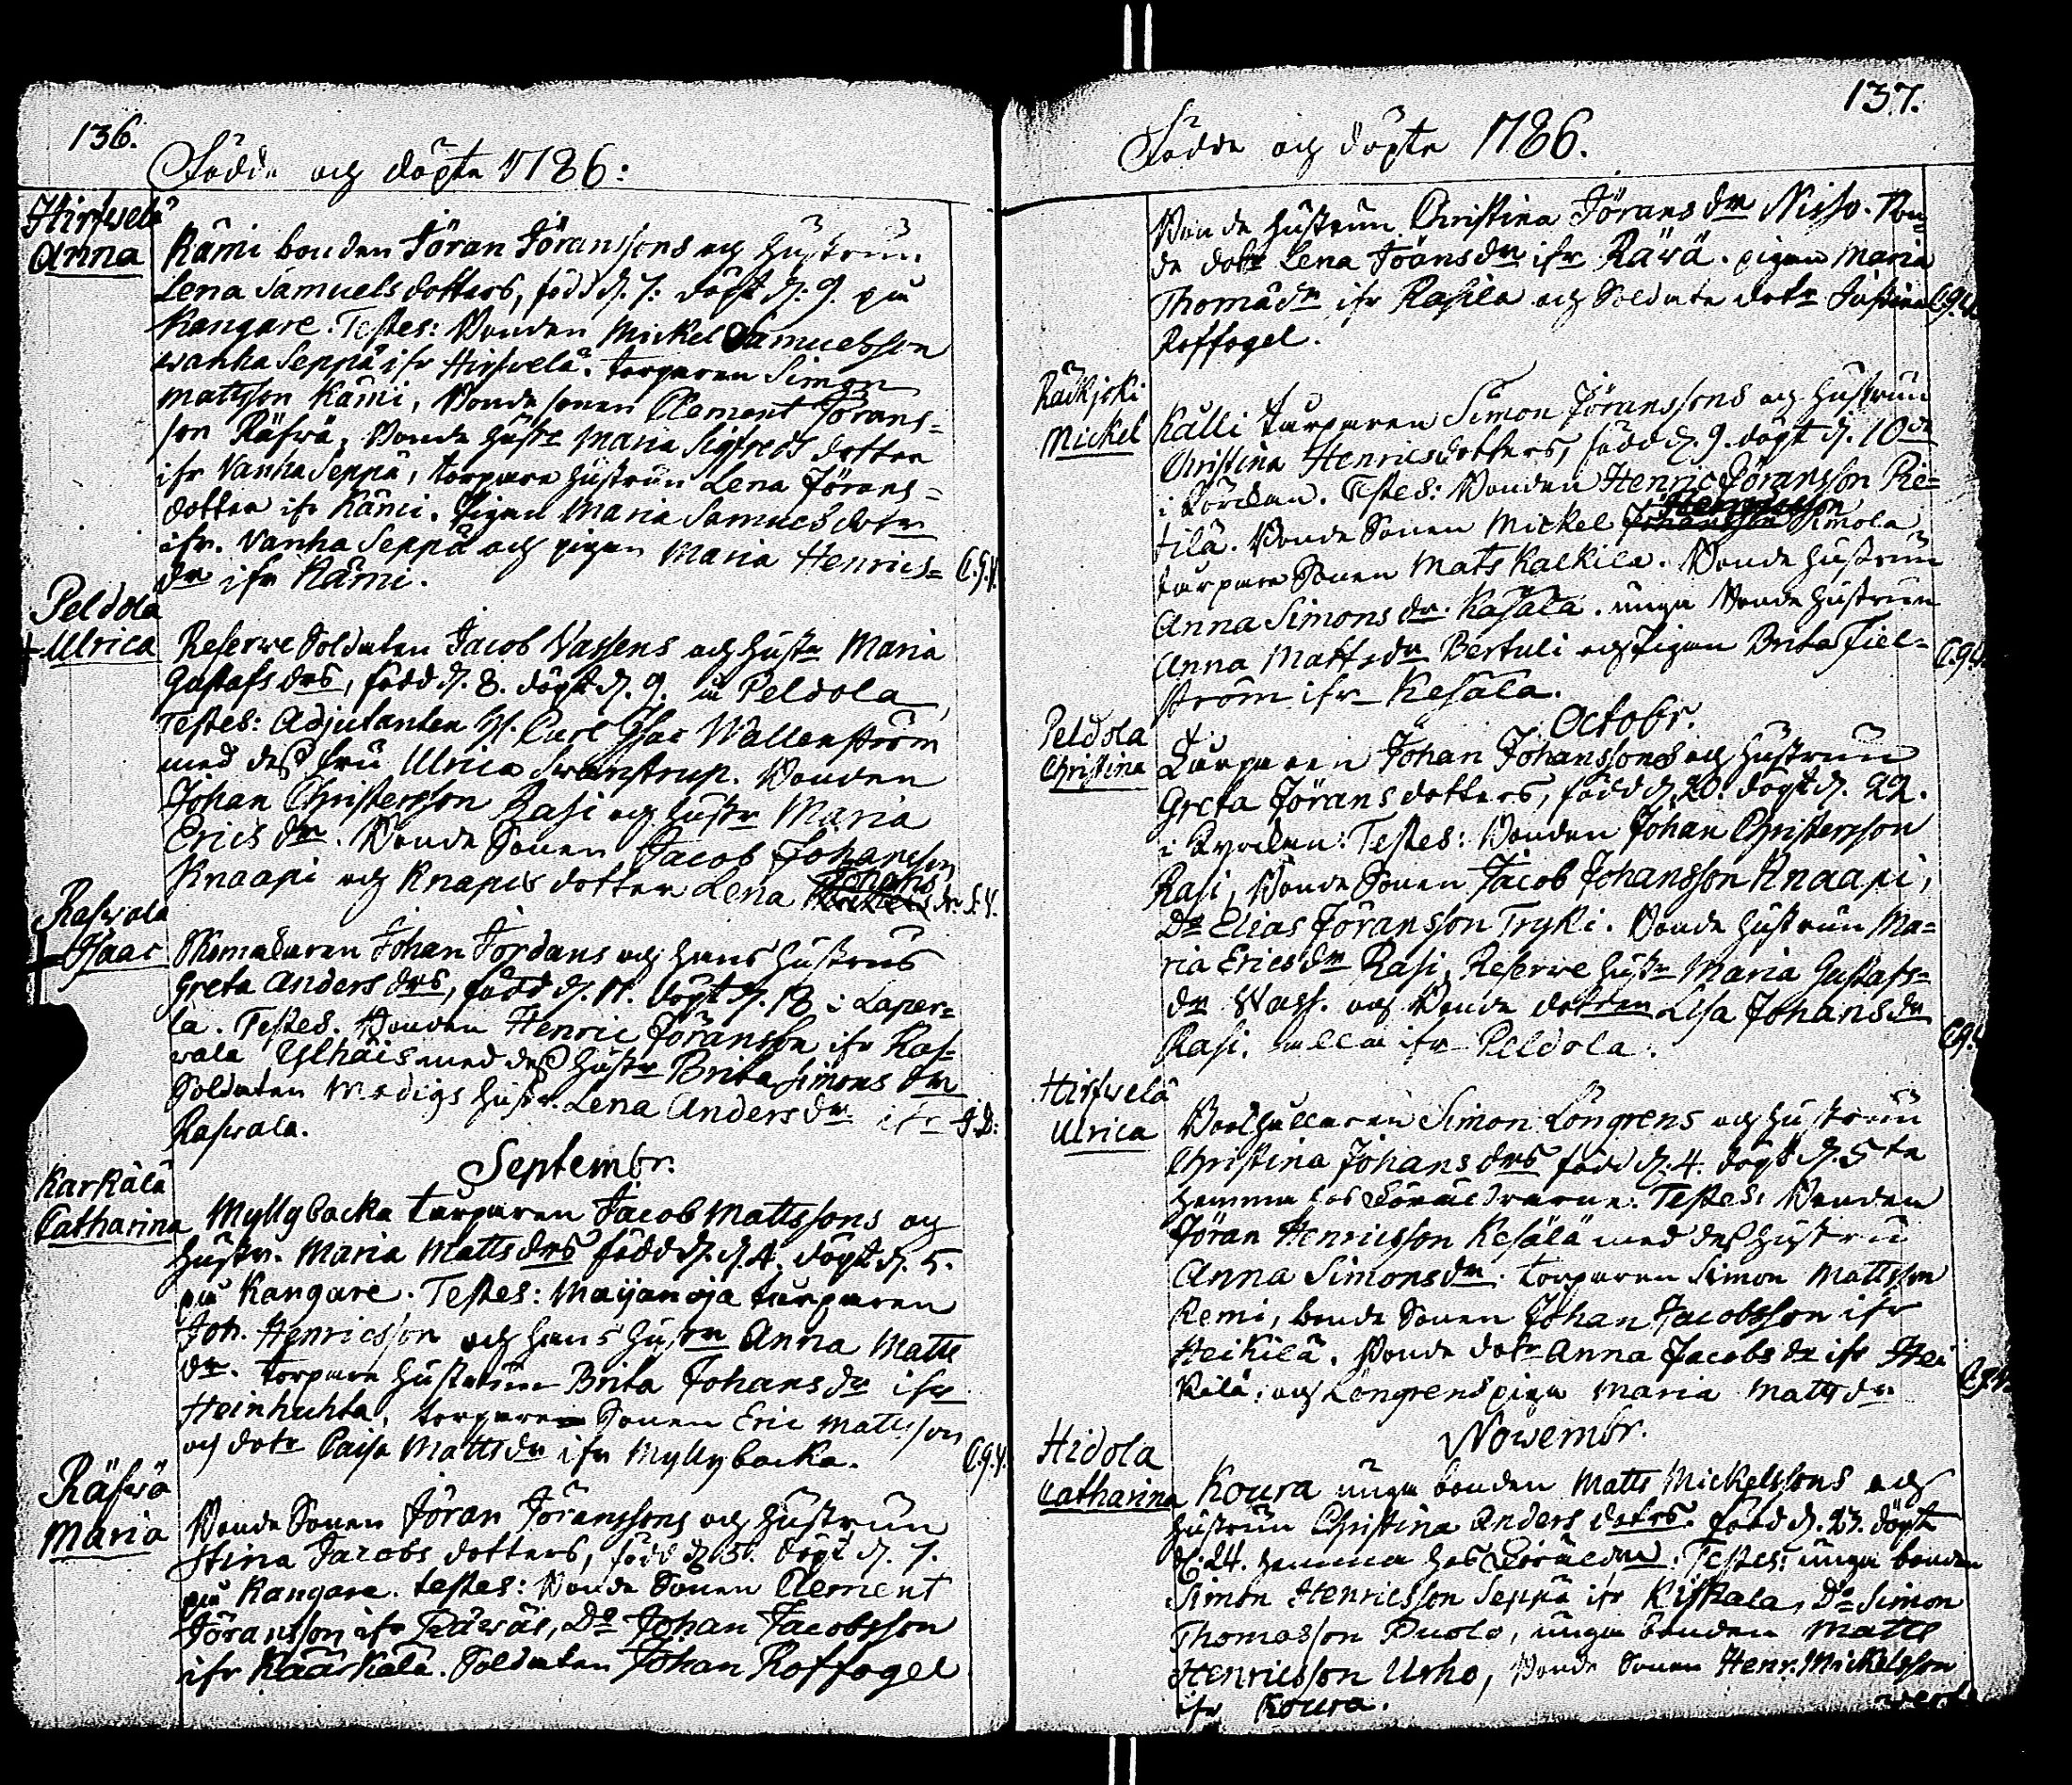 136.
Födde och döpte 1786:
Hirfvelä
Anna
Kämi bonden Jöran Jöranssons och hustrun
Lena Samuelsdotters, född d. 7. döpt d. 9. på
Kangare. Testes: Bonden Mickel Samuelsson
Wanha Seppä ifr Hirfvelä. torparen Simon
Mattsson Kämi, Bonde sonen Clement Jörans=
son Räfwä, Bonde hustr Maria Sigfreds dotter
ifr Vanha Seppä, torpare hustrun Lena Jörans=
dotter ifr Kämi. Pigan Maria Samuels dotr
ifr. Vanha Seppä och pigan Maria Henrics=
dr ifr Kämi. C.G.V.
Peldola
+ Ulrica
Reserve Soldaten Jacob Vassens och hustr Maria
Gustafs drs, född d. 8. döpt d. 9. i Peldola,
Testes: Adjutanten H. Carl Isac Wallenström
med dess fru Ulrica Swanstrup. Bonden
Johan Christersson Rasi och hustr Maria
Erics dr. Bonde Sonen Jacob Johansson
Knaapi och Knapis dotter Lena Johans dr.
Raswala
+ Isaac
Skomakaren Johan Jordans och hans hustrus
Greta Anders drs, född d. 17. döpt d. 18 i Laper=
la. Testes. Bonden Henric Jöransson ifr Ras=
vala Ylhäis med dess hustr Brita Simons dr
Soldaten Modigs hustr. Lena Anders dr ifr
Raswala.
Septembr.
Karkälä
Catharina
Myllybacka torparen Jacob Mattssons och
hustr. Maria Matts drs född d. 4. döpt d. 5.
på Kangare. Testes: Maijanoja torparen
Joh. Henricsson och hans hustru Anna Matts
dr. torpare hustrun Brita Johans dr ifr
Heinhuhta, torparen Sonen Eric Mattsson
och dotr Caisa Matts dr ifr Myllybacka. C.G.V.
Räfwä
Maria
Bonde Sonen Jöran Jöranssons och hustrun
Stina Jacobs dotters, född d. 5. döpt d. 7.
på Kangare. testes: Bonde Sonen Clement
Jöransson ifr Räwäs, Do Johan Jacobsson
ifr Käärkälä. Soldaten Johan Roffogel
137.
Födde och döpte 1786.
Bonde hustrun Christina Jörans dr Nisso. Bon=
de dotr Lena Jöransdr ifr Räwä. pigan Maria
Thomä dr ifr Rasila och Soldate dotr Justina
Roffogel.
Räikjoki
Mickel
Kalli torparen Simon Jöranssons och hustrun
Christina Henricsdotters, född d. 9. döpt d. 10de
i Kÿrckan. Testes: Bonden Henric Jöransson Pie=
tilä. Bonde Sonen Mickel Henricsson Simola
torpare Sonen Mats Kalkila. Bonde hustrun
Anna Simons dr. Kasälä. unga Bonde hustrun
Anna Matts dr Bertuli och Pigan Brita Fiel=
ström ifr Kesälä.
Octobr.
Peldola
Christina
Torparen Johan Johanssons och hustrun
Greta Jörans dotters, född d. 20. döpt d. 22.
i Kyrckan: Testes: Bonden Johan Christersson
Rasi, Bonde Sonen Jacob Johansson Knaapi,
Do Elias Jöransson Tryki. Bonde hustrun Ma=
ria Erics dr Rasi, Reserve hustr Maria Gustafs=
dr Wass. och Bonde dottren Lisa Johans dr
Rasi. alla ifr Peldola.
Hirfwelä
Ulrica
Boelhållaren Simon Löngrens och hustrun
Christina Johans drs född d. 4. döpt d. 5te
hemma hos Föräldrarne. Testes: Bonden
Jöran Henricsson Kesälä med dess hustru
Anna Simons dr. torparen Simon Mattsson
Kemi, bonde Sonen Johan Jacobsson ifr
Heikilä. Bonde dotr Anna Jacobs dr ifr Hei
kilä. och Löngrens piga Maria Matts dr
Nowembr.
Hidola
Catharina
Koura unga bonden Matts Mickelssons och
hustrun Christina Anders dotrs. född d. 23. döpt
d. 24. hemma hos Föräldr. Testes: unga bonden
Simon Henricsson Seppä ifr Kiskala, Do Simon
Thomasson Puolo, unga bonden Matts
Henricsson Urho, Bonde Sonen Henr. Mickelsson
ifr Koura.